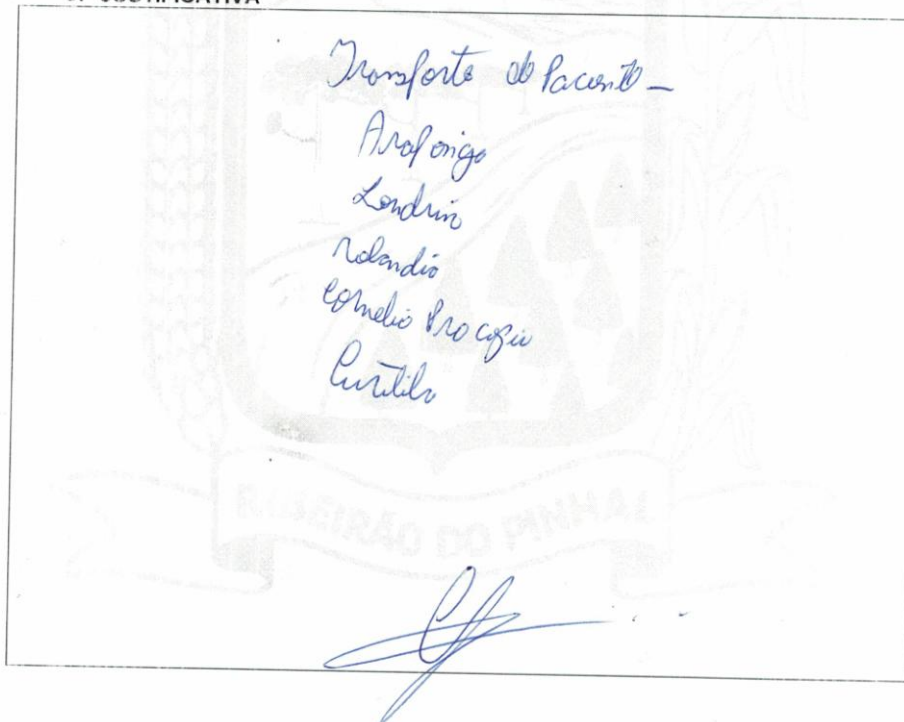 JUSTIFICATIVA
Transporte de Paciente -
Arapongas
Londrina
Rolandia
Cornelio Procopio
Curitiba
RIBEIRÃO DO PINHAL